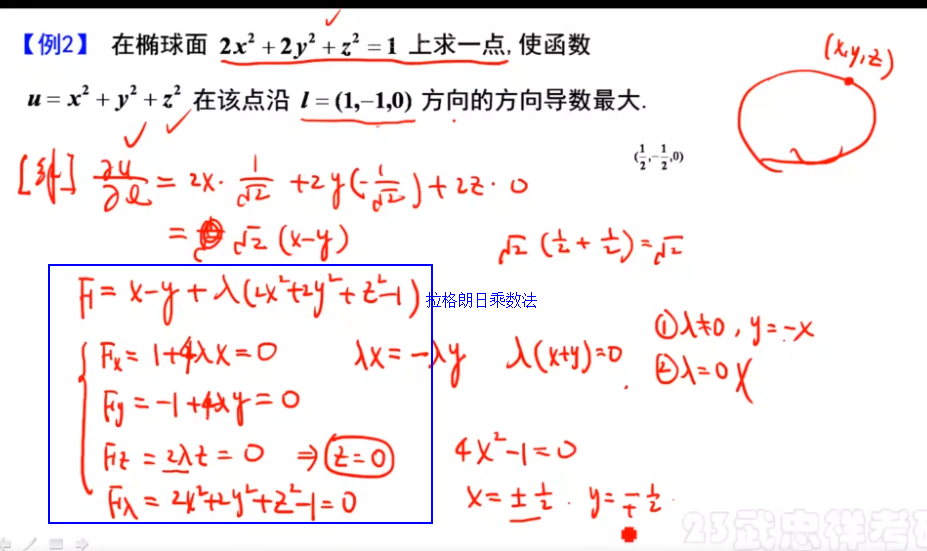 【例2】 在椭球面 2x² + 2y² + z² = 1 上求一点, 使函数
(x,y,z)
u = x² + y² + z² 在该点沿 l = (1,−1,0) 方向的方向导数最大.
(1/2, −1/2, 0)
[解] ∂u/∂l = 2x · 1/√2 + 2y(−1/√2) + 2z · 0
= √2 (x−y)
√2 (1/2 + 1/2) = √2
F = x−y + λ(2x²+2y²+z²−1)
拉格朗日乘数法
① λ≠0, y = −x
Fx = 1+4λx = 0
λx = −λy
λ(x+y)=0
② λ=0 ×
Fy = −1+4λy = 0
Fz = 2λz = 0 ⇒ z=0
4x²−1=0
Fλ = 2x²+2y²+z²−1=0
x = ±1/2 . y = ∓1/2 .
23武忠祥考研